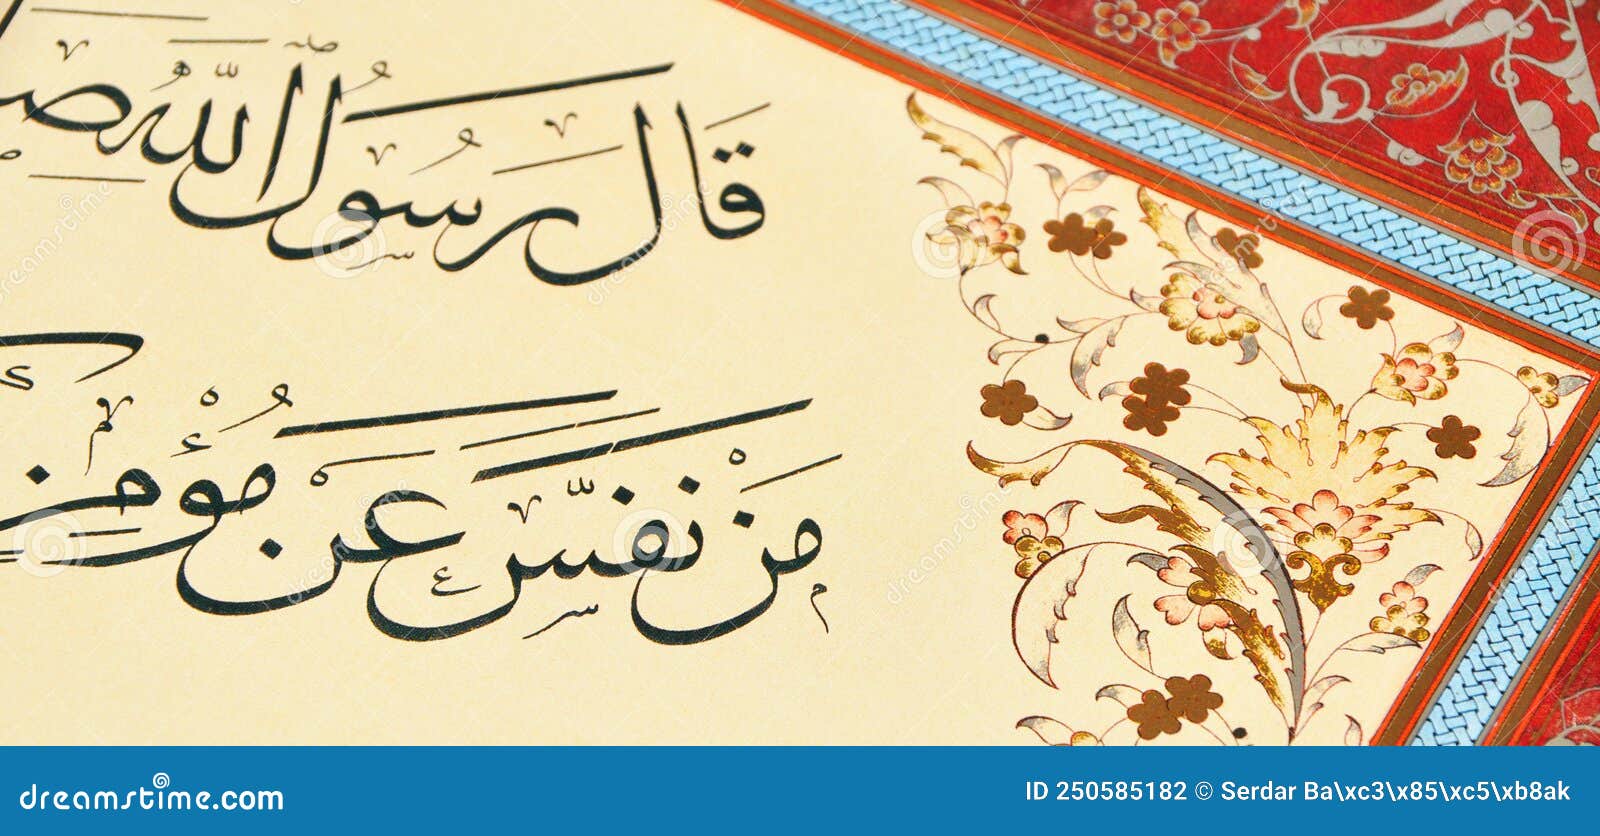 قَالَ رَسُولُ اللّٰهِ
مَنْ نَفَّسَ عَنْ مُؤْمِنٍ
dreamstime.com
ID 250585182 © Serdar Ba\xc3\x85\xc5\xb8ak